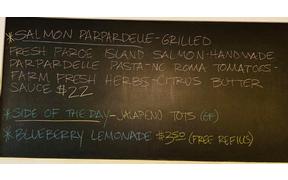 *SALMON PARPARDELLE-GRILLED
FRESH FAROE ISLAND SALMON-HANDMADE
PARPARDELLE PASTA-NC ROMA TOMATOES-
FARM FRESH HERBS-CITRUS BUTTER
SAUCE $22
*SIDE OF THE DAY-JALAPENO TOTS (GF)
*BLUEBERRY LEMONADE $3.50 (FREE REFILLS)